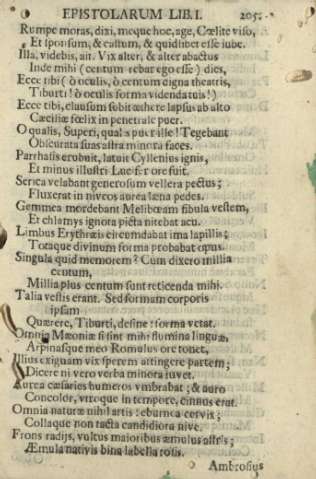 EPISTOLARUM LIB. I. 205.
Rumpe moras, dixi, meque hoc, age, Cœlite viso,
Et sponsum, & cultum, & quidlibet esse iube.
Illa, videbis, ait. Vix alter, & alter abactus
Inde mihi (centum rebar ego esse) dies,
Ecce tibi (ô oculis, ô centum digna theatris,
Tiburti! ô oculis forma videnda tuis!)
Ecce tibi, clausum subit æthere lapsus ab alto
Cæciliæ fœlix in penetrale puer.
O qualis, Superi, qualis puer ille! Tegebant
Obscurata suas astra minora faces.
Parrhasis erubuit, latuit Cyllenius ignis,
Et minus illustri Lucifer ore fuit.
Serica velabant generosum vellera pectus;
Fluxerat in niveos aurea læna pedes.
Gemmea mordebant Melibœam fibula vestem,
Et chlamys ignota picta nitebat acu.
Limbus Erythræis circumdabat ima lapillis;
Totaque divinum forma probabat opus.
Singula quid memorem? Cum dixero millia
centum,
Millia plus centum sunt reticenda mihi.
Talia vestis erant. Sed formam corporis
ipsam
Quærere, Tiburti, desine: forma vetat.
Omnia Mæoniæ sint mihi flumina linguæ,
Arpinasque meo Romulus ore tonet,
Illius exiguam vix sperem attingere partem,
Dicere ni vero verba minora iuvet.
Aurea cæsaries humeros vmbrabat; & auro
Concolor, vtroque in tempore, cinnus erat.
Omnia naturæ nihil artis: eburnea cervix;
Collaque non tacta candidiora nive.
Frons radijs, vultus maioribus æmulus astris;
Æmula nativis bina labella rosis.
Ambrosius